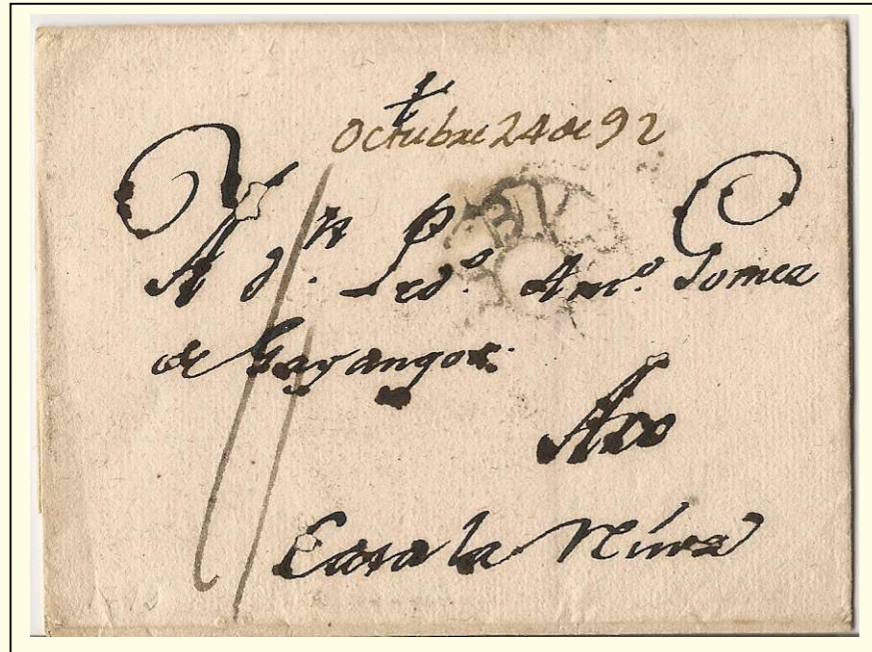 Octubre 24 de 92
A dn. Pedo. Anto. Gomez
de Gayangos.
Aro
Casa la Reina